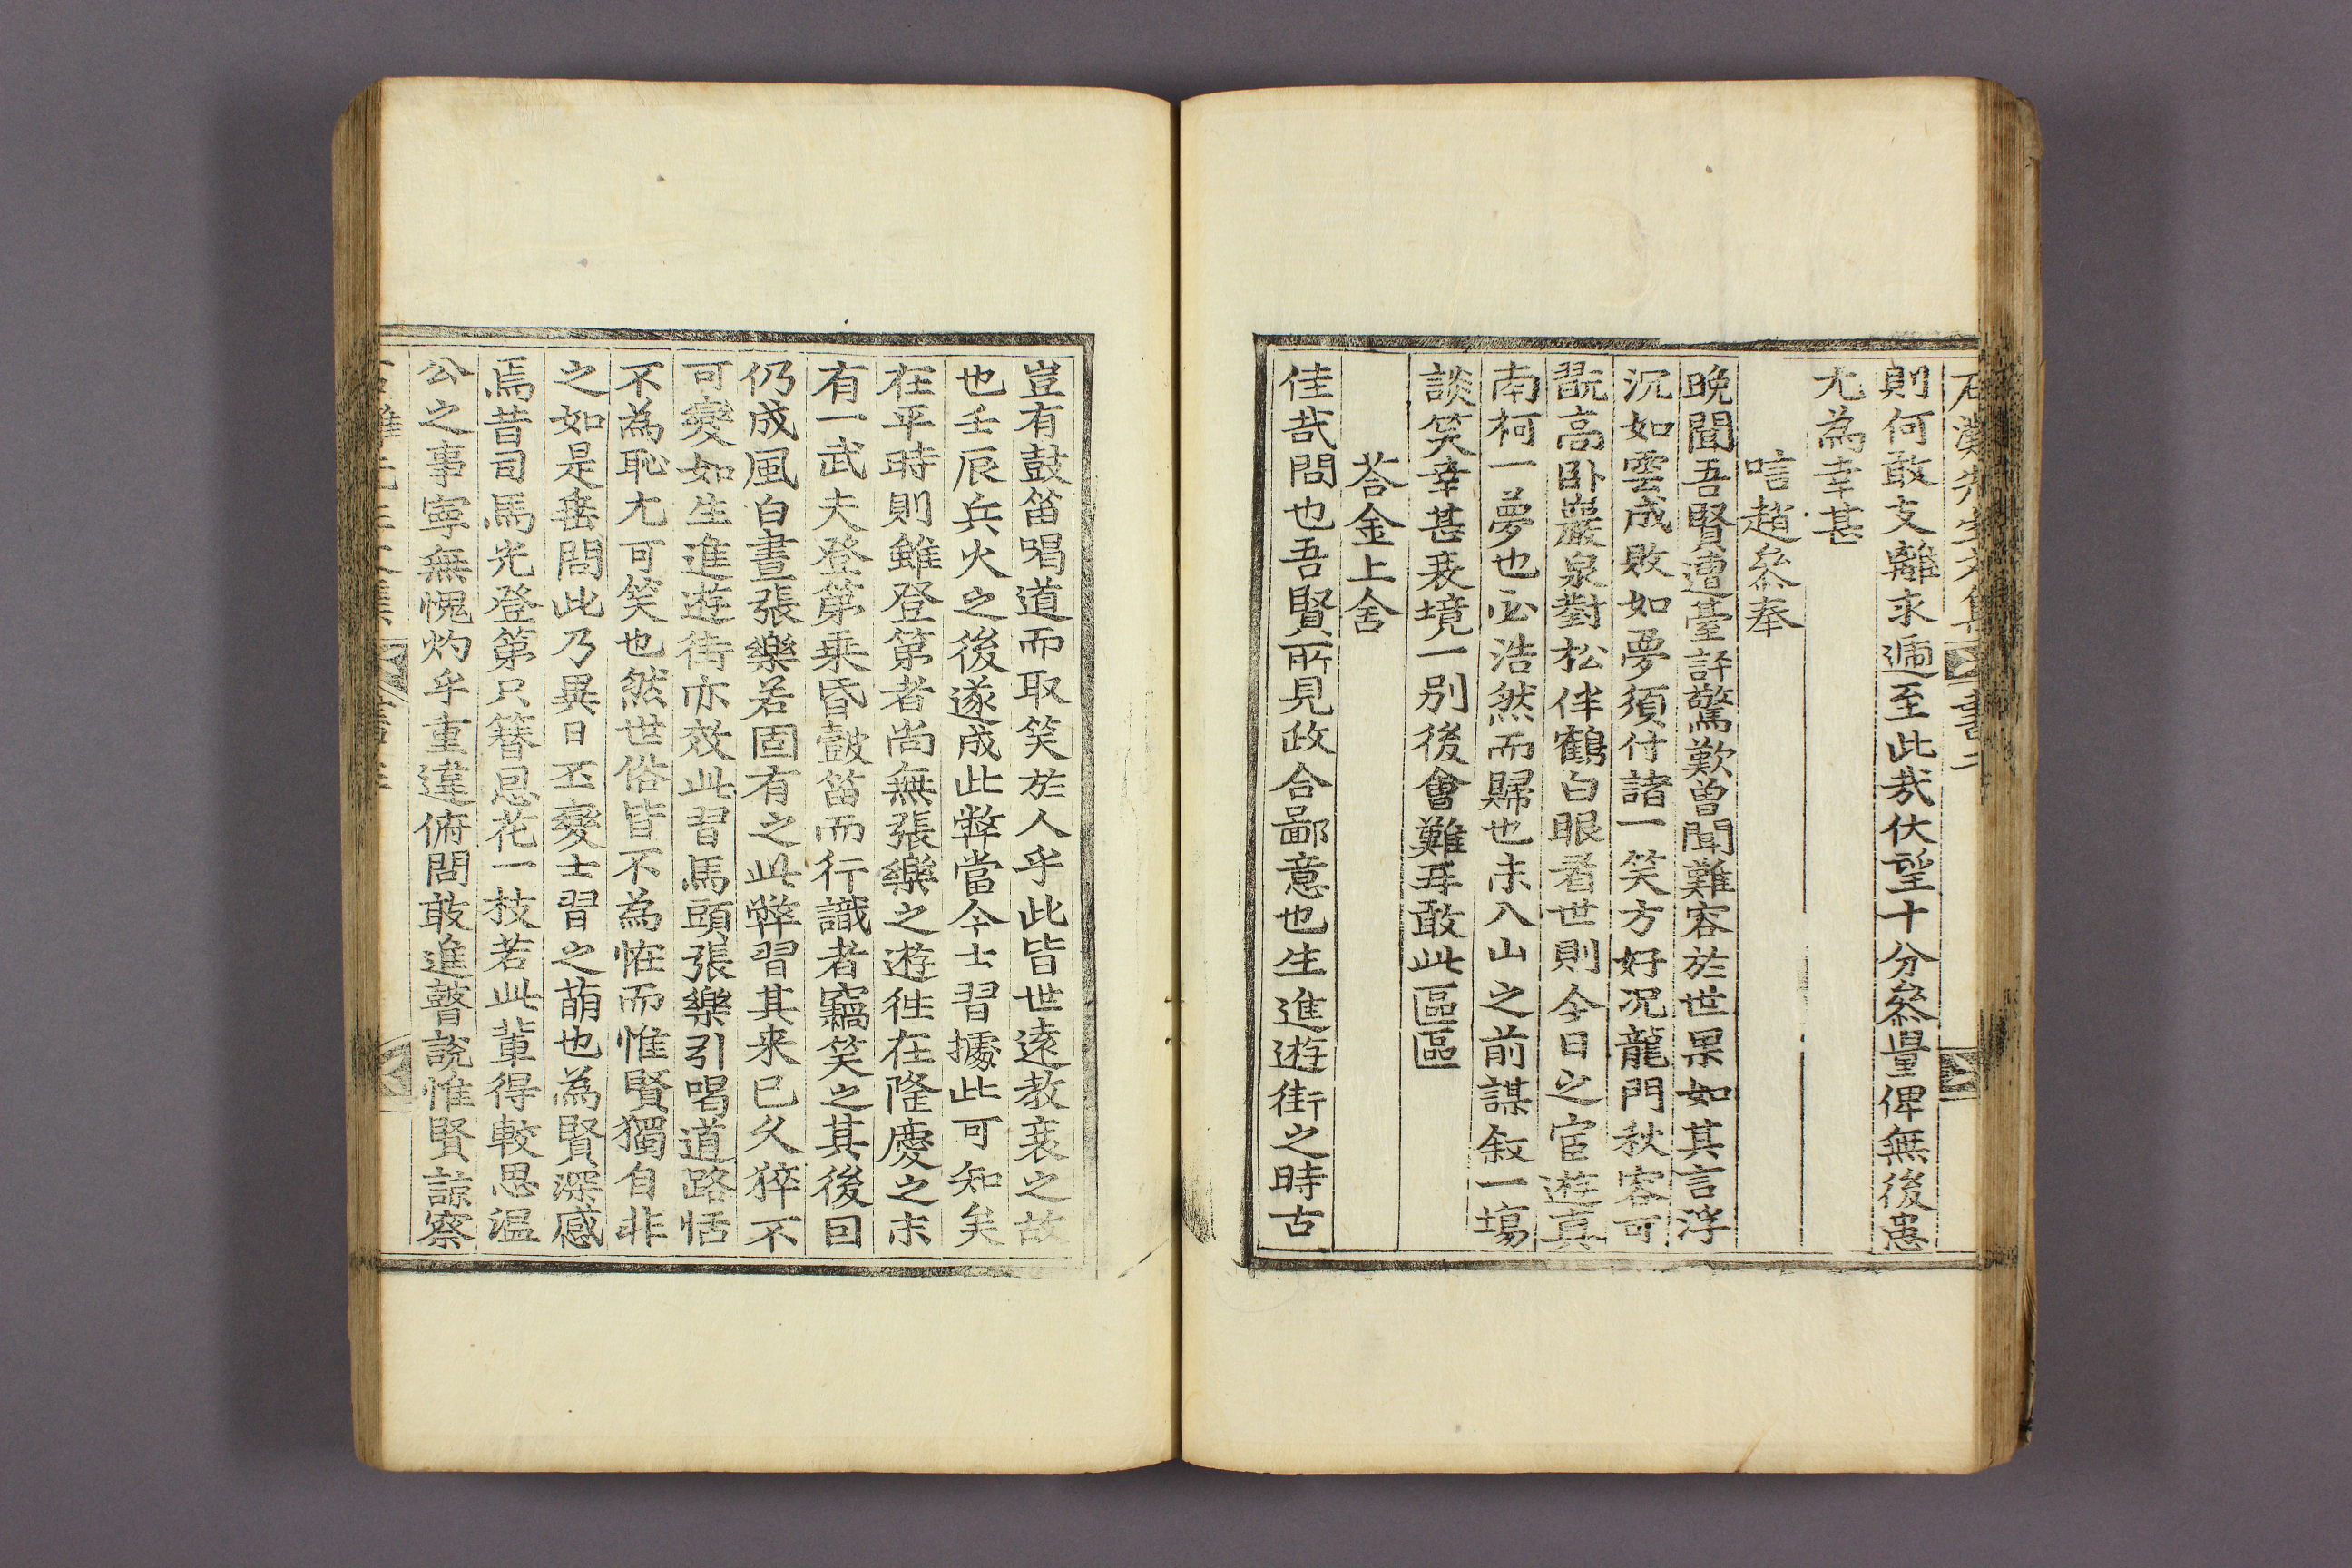 先生文集 書二
則何敢支離求遁至此哉伏望十分叅量俾無後患
尤為幸甚
唁趙叅奉
晩聞吾賢遭臺評驚歎曾聞難容於世果如其言浮
沉如雲成敗如夢須付諸一笑方好况龍門秋容可
翫高卧巖泉對松伴鶴白眼看世則今日之宦遊真
南柯一夢也必浩然而歸也未入山之前謀敘一塲
談笑幸甚衰境一別後會難再敢此區區
荅金上舍
佳哉問也吾賢所見政合鄙意也生進遊街之時古
豈有鼓笛喝道而取笑於人乎此皆世逺教衰之故
也壬辰兵火之後遂成此弊當今士習據此可知矣
在平時則雖登第者尚無張樂之遊徃在隆慶之末
有一武夫登第乗昏皷笛而行識者竊笑之其後因
仍成風白晝張樂若固有之此弊習其来已久猝不
可變如生進遊街亦效此習馬頭張樂引喝道路恬
不為恥尤可笑也然世俗皆不為恠而惟賢獨自非
之如是垂問此乃異日丕變士習之萌也為賢深感
焉昔司馬光登第只簪恩花一枝若此軰得較思温
公之事寧無愧灼乎重違俯問敢進瞽說惟賢諒察